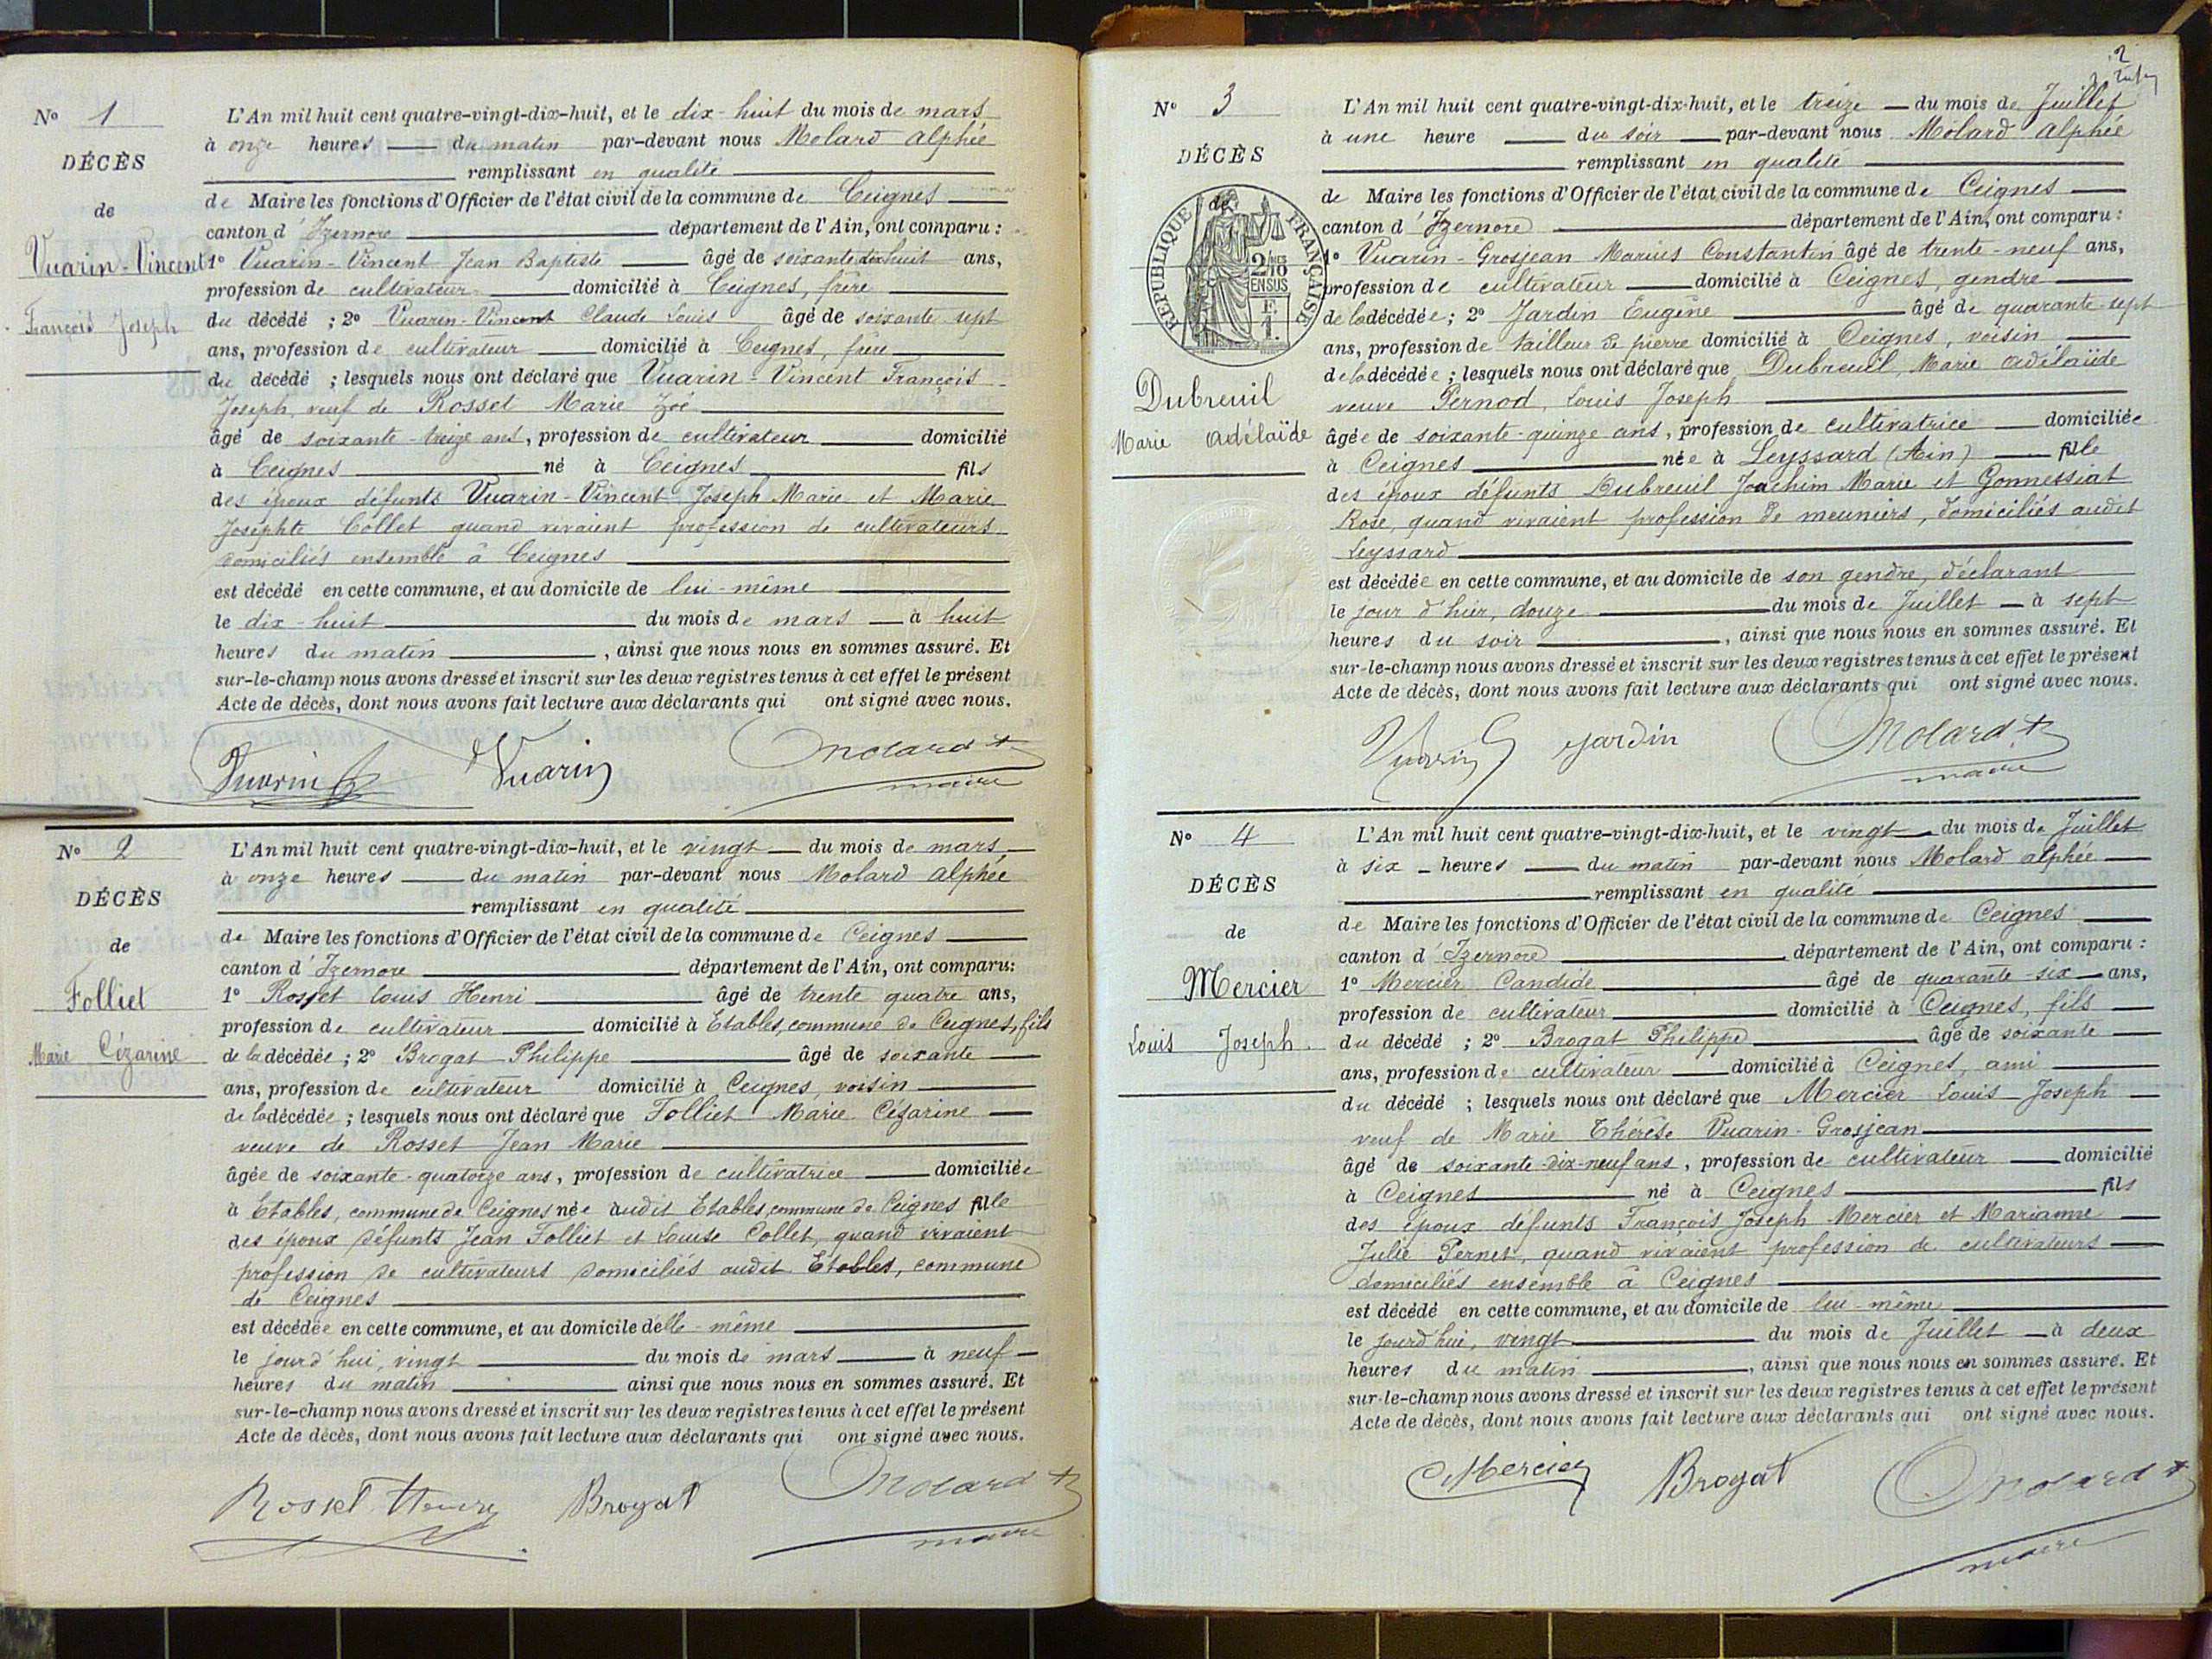 N° 1
DÉCÈS
de
Vuarin-Vincent
François Joseph
L'An mil huit cent quatre-vingt-dix-huit, et le dix-huit du mois de mars
à onze heures du matin par-devant nous Molard Alphée
remplissant en qualité
de Maire les fonctions d'Officier de l'état civil de la commune de Ceignes
canton d'Izernore département de l'Ain, ont comparu :
1° Vuarin-Vincent Jean Baptiste âgé de soixante dix huit ans,
profession de cultivateur domicilié à Ceignes, frère
du décédé ; 2° Vuarin-Vincent Claude Louis âgé de soixante sept
ans, profession de cultivateur domicilié à Ceignes, frère
du décédé ; lesquels nous ont déclaré que Vuarin-Vincent François
Joseph, veuf de Rosset Marie Zoé
âgé de soixante-treize ans, profession de cultivateur domicilié
à Ceignes né à Ceignes fils
des époux défunts Vuarin-Vincent Joseph Marie et Marie
Josephte Collet quand vivaient profession de cultivateurs
domiciliés ensemble à Ceignes
est décédé en cette commune, et au domicile de lui-même
le dix-huit du mois de mars à huit
heures du matin, ainsi que nous nous en sommes assuré. Et
sur-le-champ nous avons dressé et inscrit sur les deux registres tenus à cet effet le présent
Acte de décès, dont nous avons fait lecture aux déclarants qui ont signé avec nous.
Vuarin Vuarin Molard
maire
N° 2
DÉCÈS
de
Folliet
Marie Cézarine
L'An mil huit cent quatre-vingt-dix-huit, et le vingt du mois de mars
à onze heures du matin par-devant nous Molard Alphée
remplissant en qualité
de Maire les fonctions d'Officier de l'état civil de la commune de Ceignes
canton d'Izernore département de l'Ain, ont comparu:
1° Rosset Louis Henri âgé de trente quatre ans,
profession de cultivateur domicilié à Etables, commune de Ceignes, fils
de la décédée ; 2° Brogat Philippe âgé de soixante
ans, profession de cultivateur domicilié à Ceignes, voisin
de la décédée ; lesquels nous ont déclaré que Folliet Marie Cézarine
veuve de Rosset Jean Marie
âgée de soixante-quatorze ans, profession de cultivatrice domiciliée
à Etables, commune de Ceignes née audit Etables, commune de Ceignes fille
des époux défunts Jean Folliet et Louise Collet, quand vivaient
profession de cultivateurs domiciliés audit Etables, commune
de Ceignes
est décédée en cette commune, et au domicile d'elle-même
le jourd'hui, vingt du mois de mars à neuf
heures du matin ainsi que nous nous en sommes assuré. Et
sur-le-champ nous avons dressé et inscrit sur les deux registres tenus à cet effet le présent
Acte de décès, dont nous avons fait lecture aux déclarants qui ont signé avec nous.
Rosset Henri Brogat Molard
maire
2
N° 3
DÉCÈS
de
RÉPUBLIQUE FRANÇAISE
2/10 EN SUS
Dubreuil
Marie Adélaïde
L'An mil huit cent quatre-vingt-dix-huit, et le treize du mois de Juillet
à une heure du soir par-devant nous Molard Alphée
remplissant en qualité
de Maire les fonctions d'Officier de l'état civil de la commune de Ceignes
canton d'Izernore département de l'Ain, ont comparu :
1° Vuarin-Grosjean Marius Constantin âgé de trente-neuf ans,
profession de cultivateur domicilié à Ceignes, gendre
de la décédée ; 2° Jardin Eugène âgé de quarante-sept
ans, profession de tailleur de pierre domicilié à Ceignes, voisin
de la décédée ; lesquels nous ont déclaré que Dubreuil, Marie Adélaïde
veuve Pernod, Louis Joseph
âgée de soixante-quinze ans, profession de cultivatrice domiciliée
à Ceignes née à Leyssard (Ain) fille
des époux défunts Dubreuil Joachim Marie et Gonnessiat
Rose, quand vivaient profession de meuniers, domiciliés audit
Leyssard
est décédée en cette commune, et au domicile de son gendre, déclarant
le jour d'hier, douze du mois de Juillet à sept
heures du soir, ainsi que nous nous en sommes assuré. Et
sur-le-champ nous avons dressé et inscrit sur les deux registres tenus à cet effet le présent
Acte de décès, dont nous avons fait lecture aux déclarants qui ont signé avec nous.
Vuarin G Jardin Molard
maire
N° 4
DÉCÈS
de
Mercier
Louis Joseph.
L'An mil huit cent quatre-vingt-dix-huit, et le vingt du mois de Juillet
à six heures du matin par-devant nous Molard Alphée
remplissant en qualité
de Maire les fonctions d'Officier de l'état civil de la commune de Ceignes
canton d'Izernore département de l'Ain, ont comparu :
1° Mercier Candide âgé de quarante-six ans,
profession de cultivateur domicilié à Ceignes, fils
du décédé ; 2° Brogat Philippe âgé de soixante
ans, profession de cultivateur domicilié à Ceignes, ami
du décédé ; lesquels nous ont déclaré que Mercier Louis Joseph
veuf de Marie Thérèse Vuarin-Grosjean
âgé de soixante-dix-neuf ans, profession de cultivateur domicilié
à Ceignes né à Ceignes fils
des époux défunts François Joseph Mercier et Marianne
Julie Pernet, quand vivaient profession de cultivateurs
domiciliés ensemble à Ceignes
est décédé en cette commune, et au domicile de lui-même
le jourd'hui, vingt du mois de Juillet à deux
heures du matin, ainsi que nous nous en sommes assuré. Et
sur-le-champ nous avons dressé et inscrit sur les deux registres tenus à cet effet le présent
Acte de décès, dont nous avons fait lecture aux déclarants qui ont signé avec nous.
CMercier Brogat Molard
maire